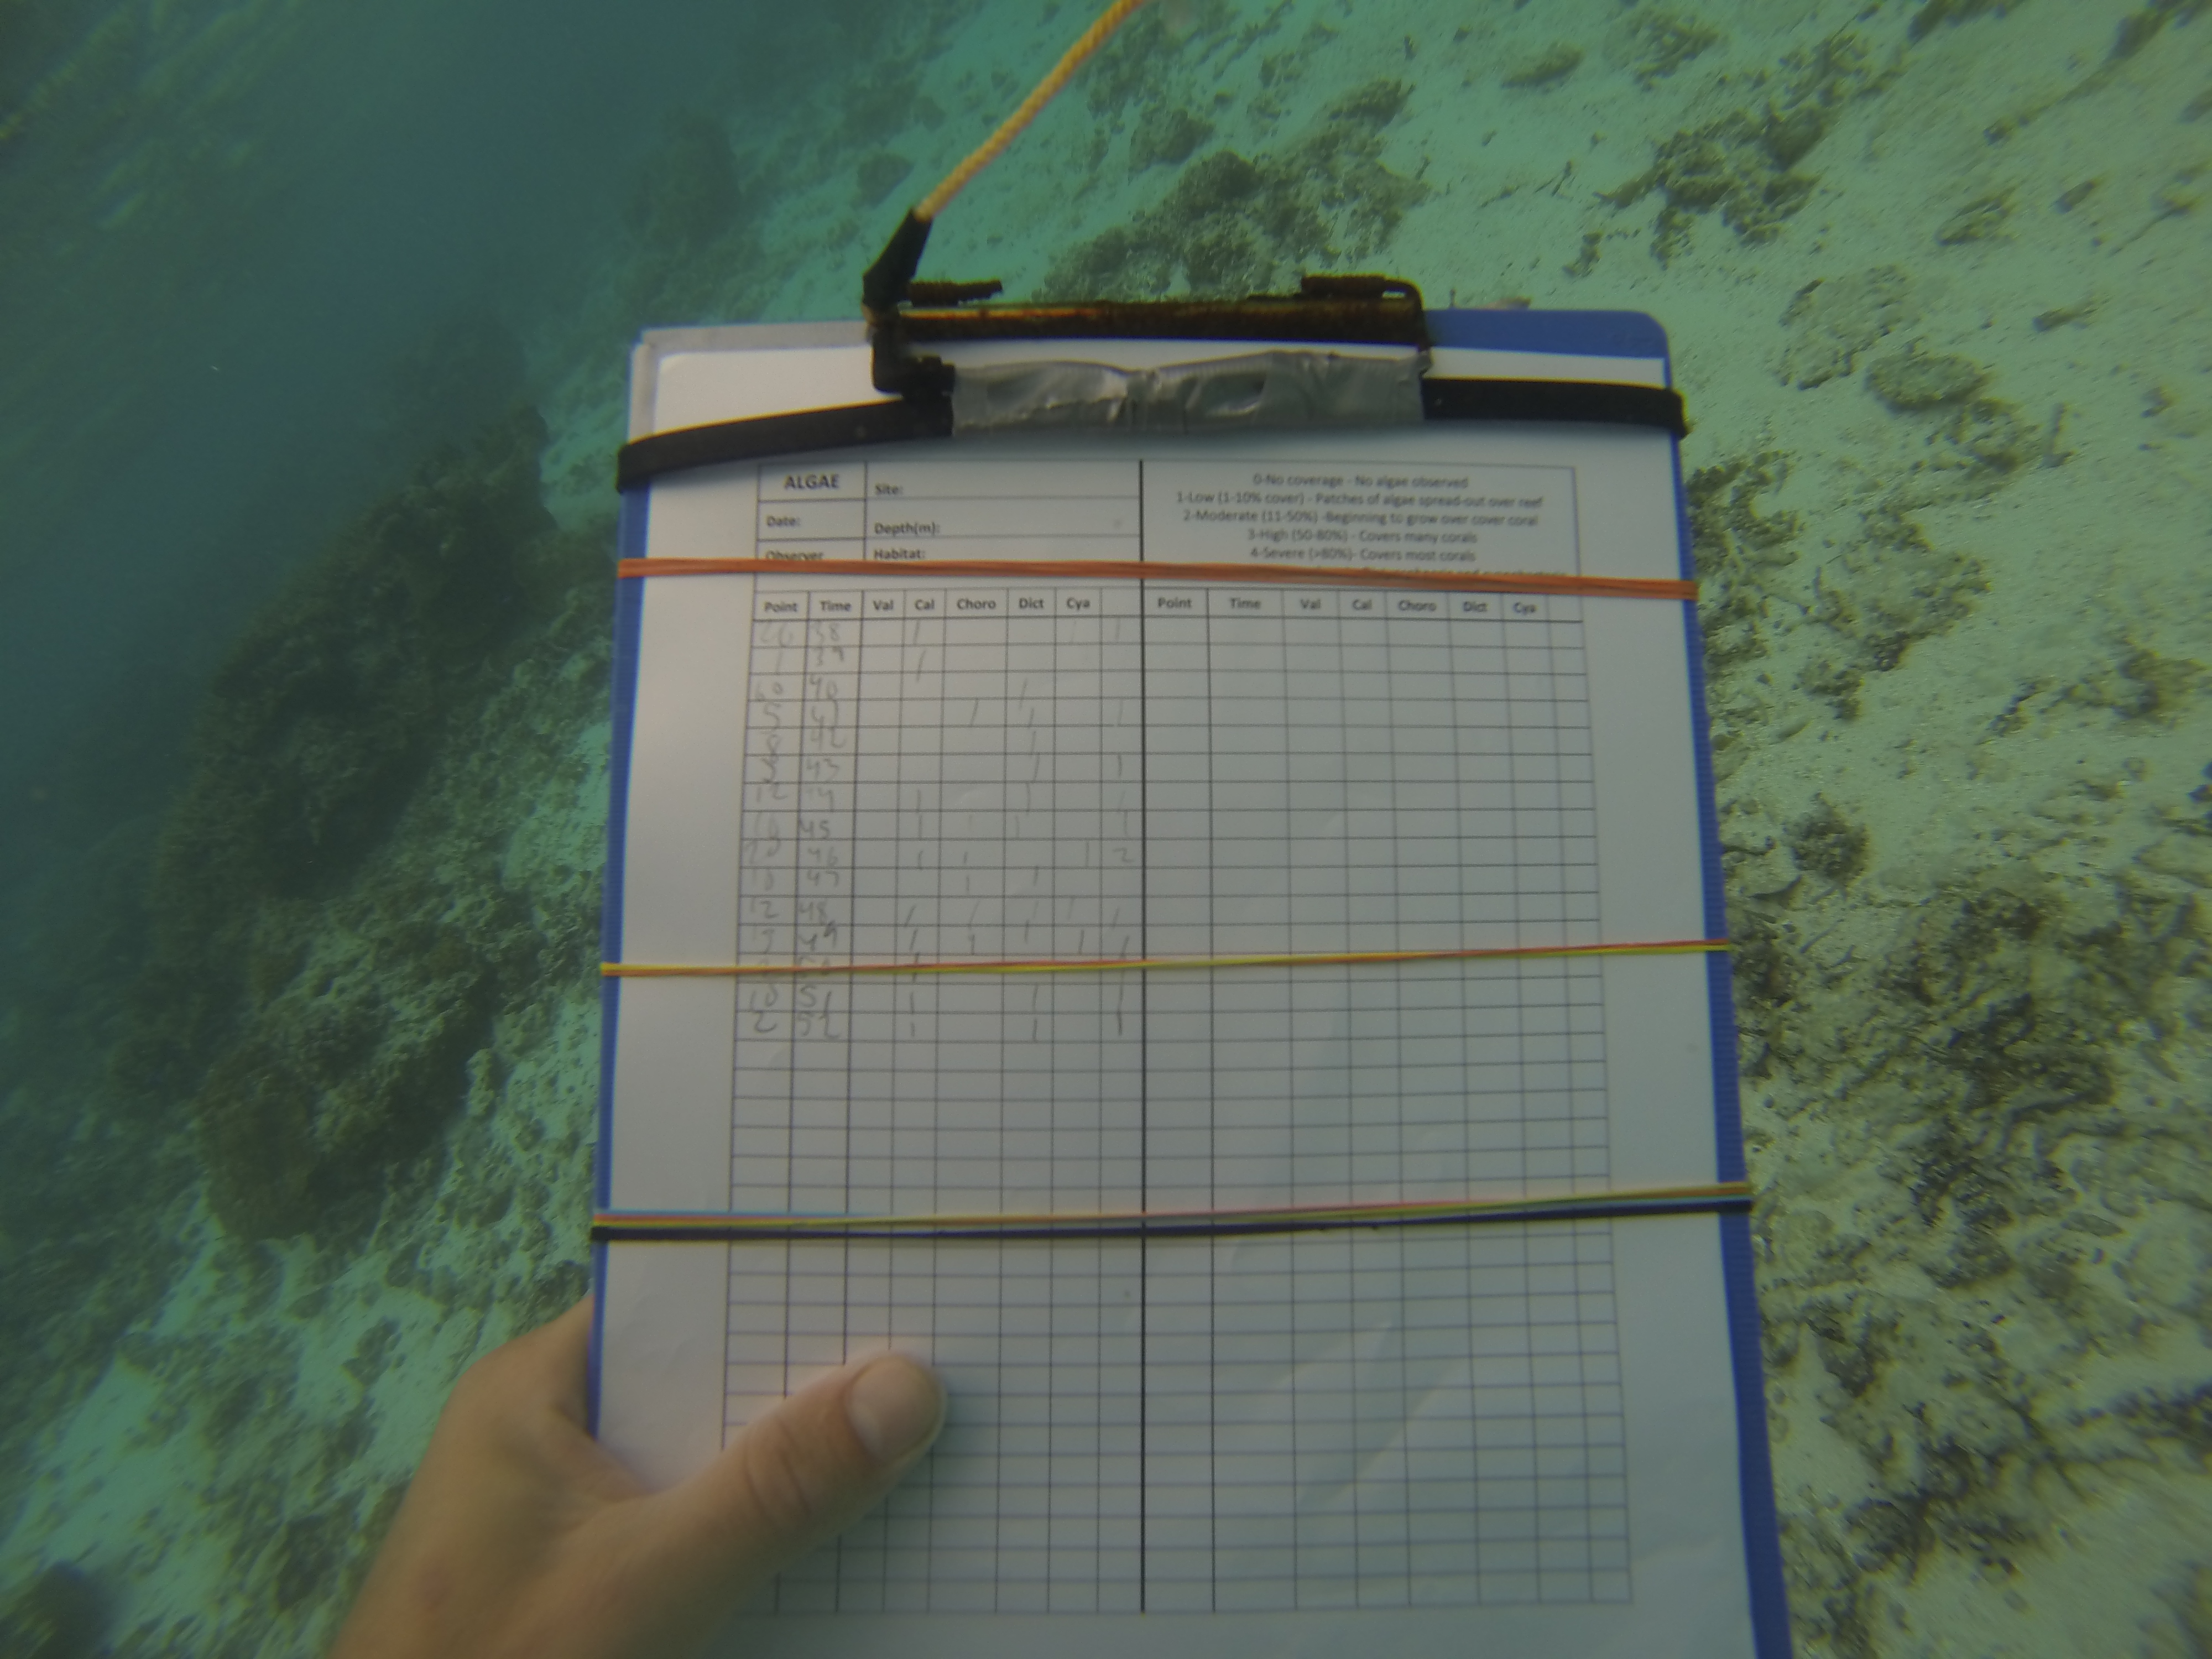 ALGAE Site: 0-No coverage - No algae observed
1-Low (1-10% cover) - Patches of algae spread-out over reef
Date: Depth(m): 2-Moderate (11-50%) -Beginning to grow over cover coral
3-High (50-80%) - Covers many corals
Observer Habitat: 4-Severe (>80%)- Covers most corals
Point Time Val Cal Choro Dict Cya Point Time Val Cal Choro Dict Cya
26 38 1 1
1 39 1
60 40 1
5 1 1 1
8 42 1
43 1 1
12 44 1 1 1
45 1 1 1
20 46 1 1 1 2
10 47 1 1
12 48 1 1 1 1 1
49 1 1 1 1 1
50 1
10 51 1 1 1
2 52 1 1 1